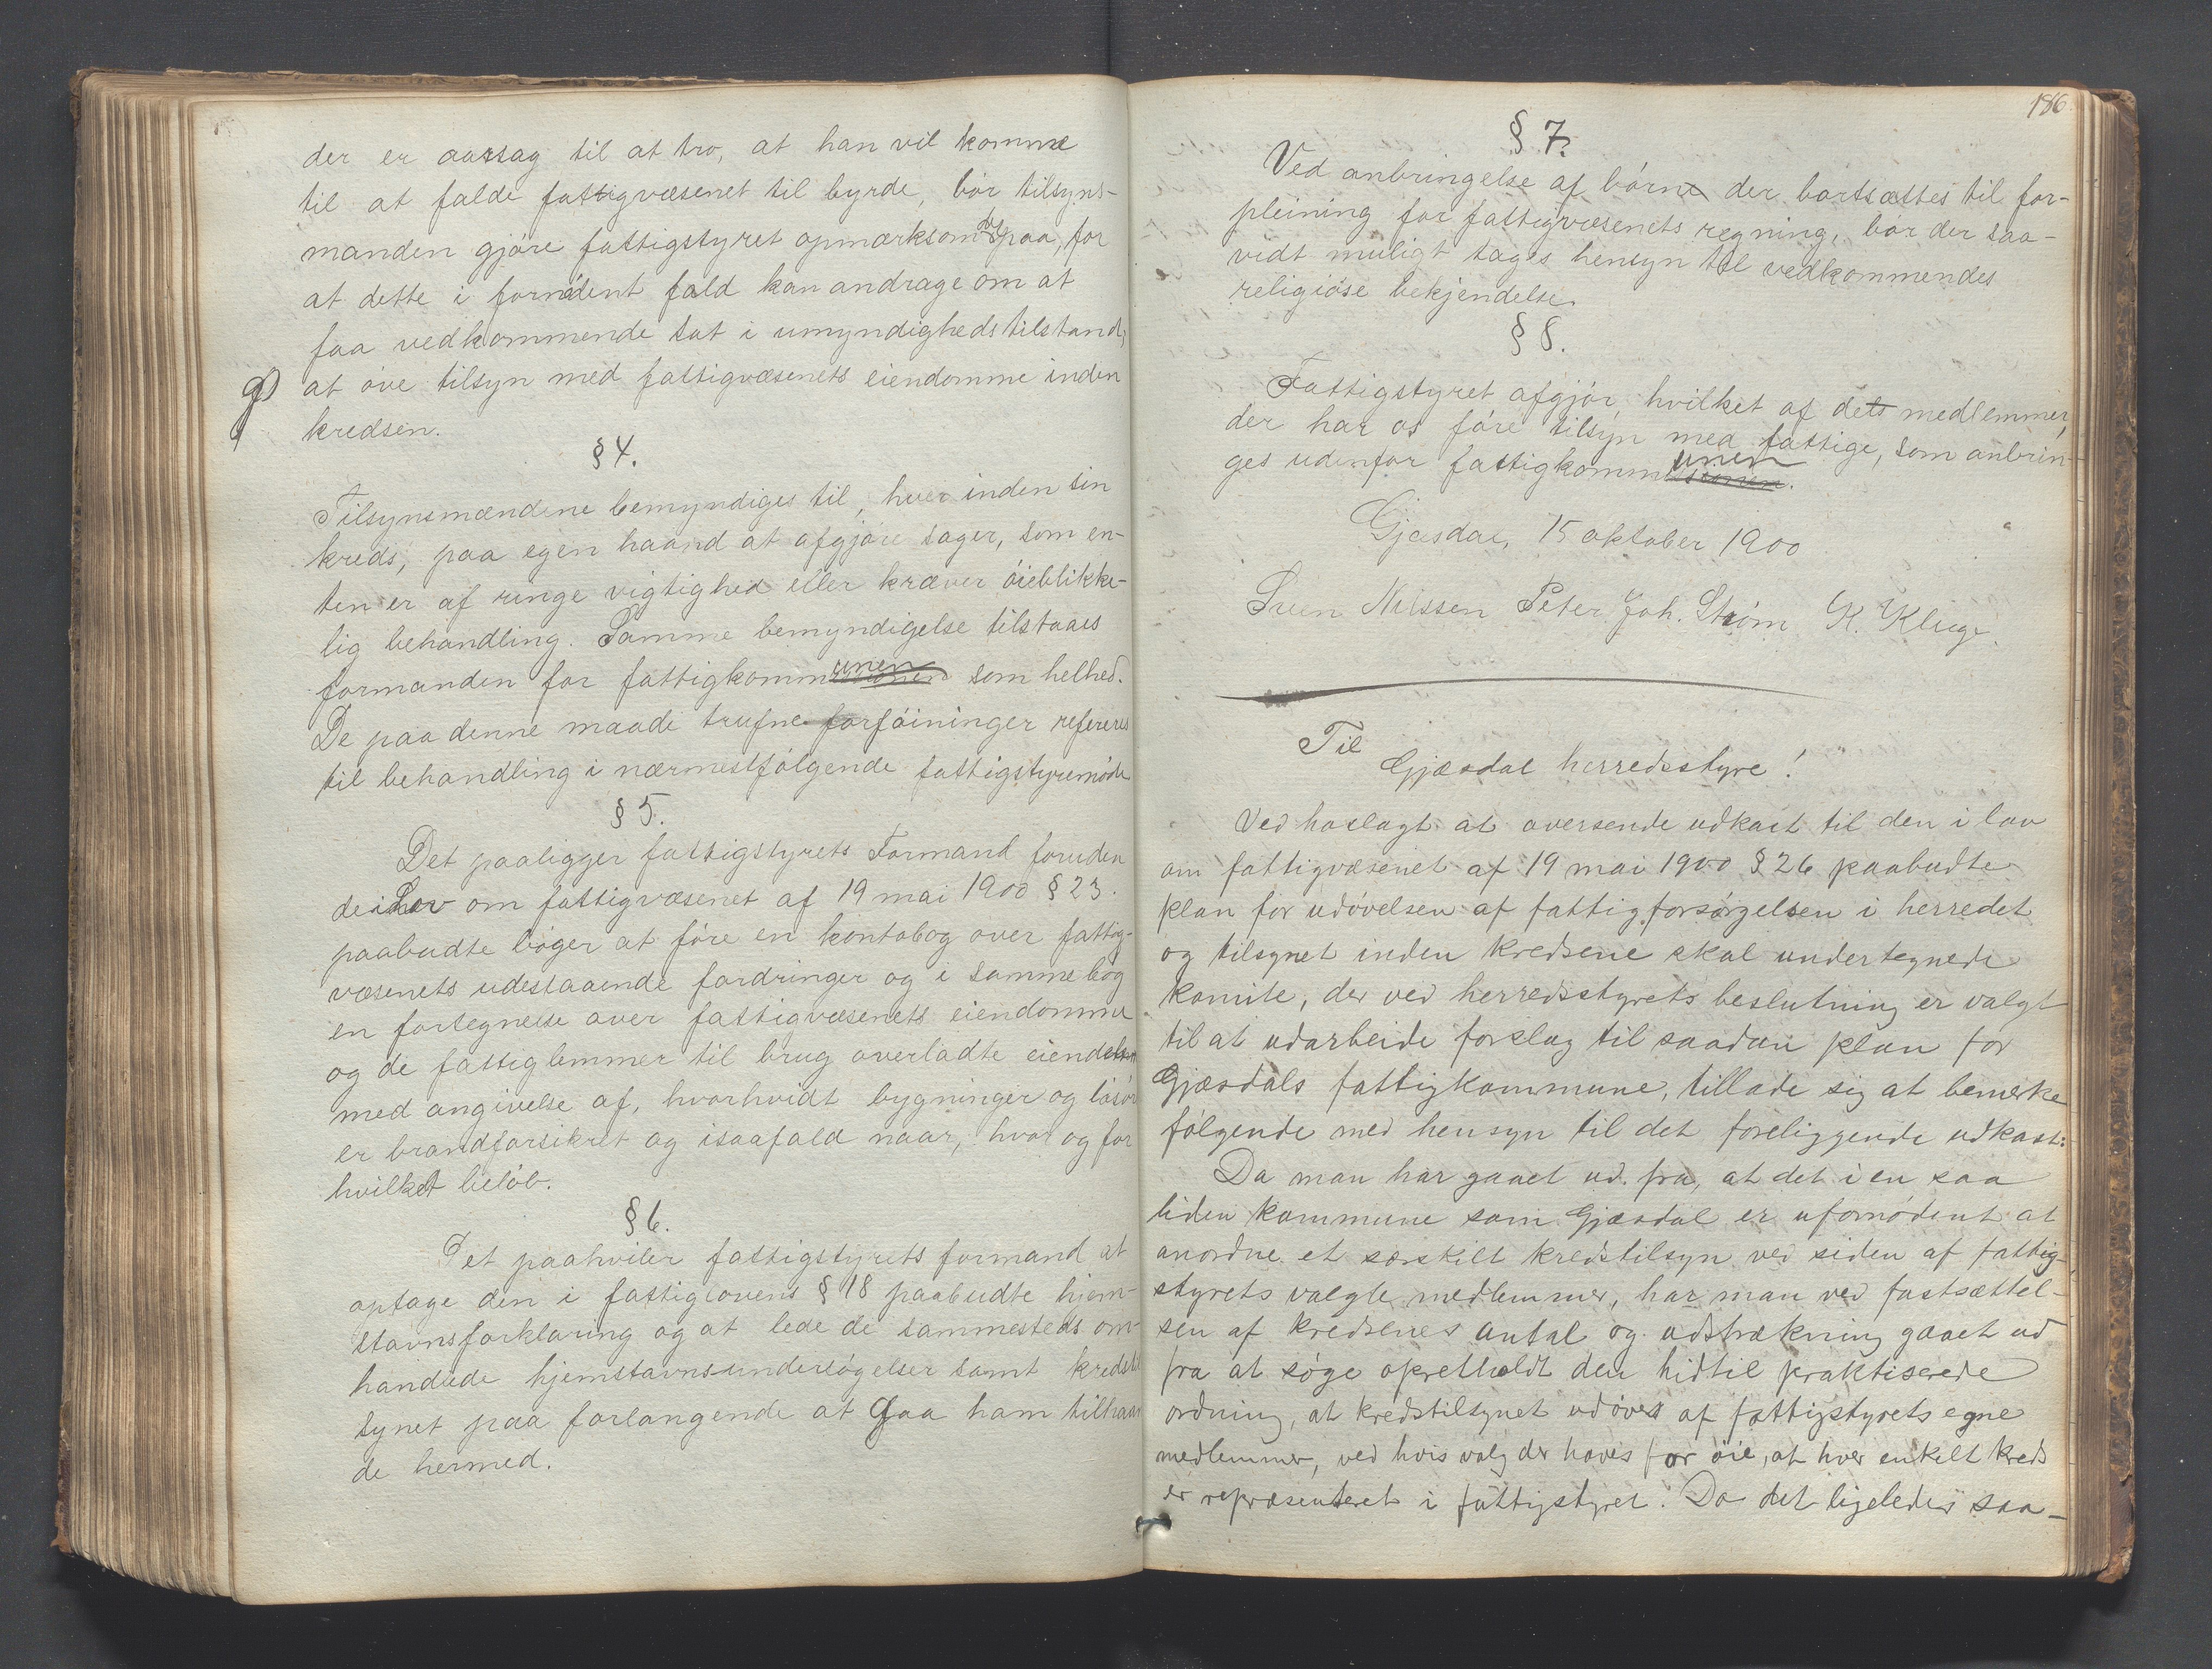 der er aarsag til at tro, at han vil komme
til at falde fattigvæsenet til byrde, bör tilsyns-
manden gjöre fattigstyret opmærksom derpaa, for
at dette i fornödent fald kan andrage om at
faa vedkommende sat i umyndighedstilstand,
g) at öve tilsyn med fattigvæsenets eiendomme inden
kredsen.
§ 4.
Tilsynsmændene bemyndiges til, hver inden sin
kreds, paa egen haand at afgjöre sager, som en-
ten er af ringe vigtighed eller kræver öieblikke-
lig behandling. Samme bemyndigelse tilstaaes
formanden for fattigkommunen som helhed.
De paa denne maade trufne forföininger refereres
til behandling i nærmestfölgende fattigstyremöde
§ 5.
Det paaligger fattigstyrets Formand foruden
de i Lov om fattigvæsenet af 19 mai 1900 § 23.
paabudte böger at före en kontobog over fattig-
væsenets udestaaende fordringer og i samme bog
en fortegnelse over fattigvæsenets eiendomme
og de fattiglemmer til brug overladte eiendele
med angivelse af, hvorhvidt bygninger og lösör
er brandforsikret og isaafald naar, hvor og for
hvilket belöb.
§ 6.
Det paahviler fattigstyrets formand at
optage den i fattiglovens § 18 paabudte hjem-
stavnsforklaring og at lede de sammesteds om-
handlede hjemstavnsundersögelser samt kredstil
synet paa forlangende at gaa ham tilhaan
de hermed.
186
§ 7.
Ved anbringelse af börn der bortsættes til for-
pleining for fattigvæsenets regning, bör der saa-
vidt muligt tages hensyn til vedkommendes
religiöse bekjendelse.
§ 8.
Fattigstyret afgjör, hvilket af dets medlemmer,
der har at före tilsyn med fattige, som anbrin-
ges udenfor fattigkommunen.
Gjæsdal, 15 oktober 1900
Sven Nilssen Peter Joh. Ström K. Kluge.
Til
Gjæsdal herredsstyre!
Ved hoslagt at oversende udkast til den i lov
om fattigvæsenet af 19 mai 1900 § 26 paabudte
plan for udövelsen af fattigforsörgelsen i herredet
og tilsynet inden kredsene skal undertegnede
komite, der ved herredsstyrets beslutning er valgt
til at udarbeide forslag til saadan plan for
Gjæsdals fattigkommune, tillade sig at bemerke
fölgende med hensyn til det foreliggende udkast:
Da man har gaaet ud fra, at det i en saa
liden kommune som Gjæsdal er ufornödent at
anordne et særskilt kredstilsyn ved siden af fattig-
styrets valgte medlemmer, har man ved fastsættel-
sen af kredsenes antal og udstrækning gaaet ud
fra at söge opretholdt den hidtil praktiserede
ordning, at kredstilsynet udöves af fattigstyrets egne
medlemmer, ved hvis valg der haves for öie, at hver enkelt kreds
er repræsenteret i fattigstyret. Da det ligeledes saa-